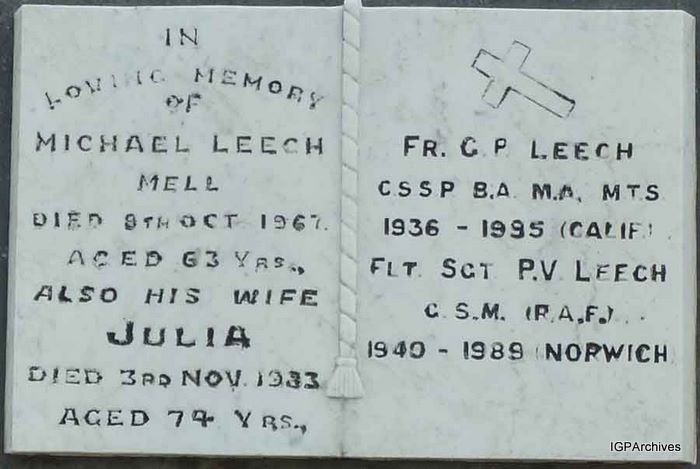 IN
LOVING MEMORY
OF
MICHAEL LEECH
MELL
DIED 8TH OCT 1967.
AGED 63 YRS.,
ALSO HIS WIFE
JULIA
DIED 3RD NOV. 1983
AGED 74 YRS.,
FR. G.P. LEECH
CSSP B.A. M.A. MTS
1936 - 1995 (CALIF.)
FLT. SGT P.V. LEECH
G.S.M. (R.A.F.)
1940 - 1989 (NORWICH)
IGPArchives